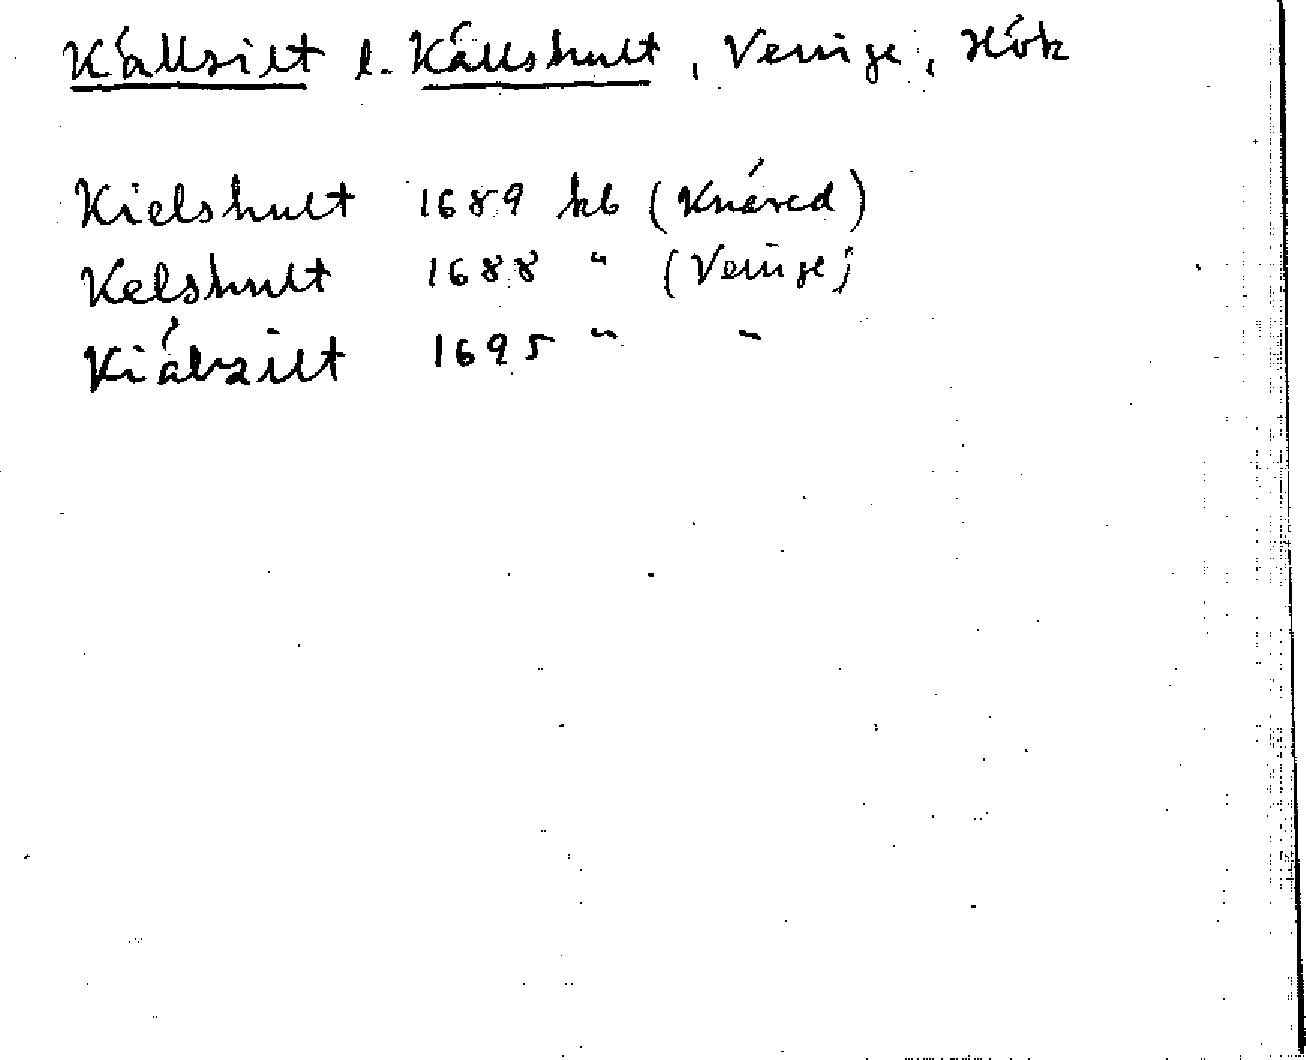 Källsilt l. Källshult, Veinge, Hök
Kielshult 1689 kb (Knäred)
Kelshult 1688 " (Veinge)
Kiälzilt 1695 " "